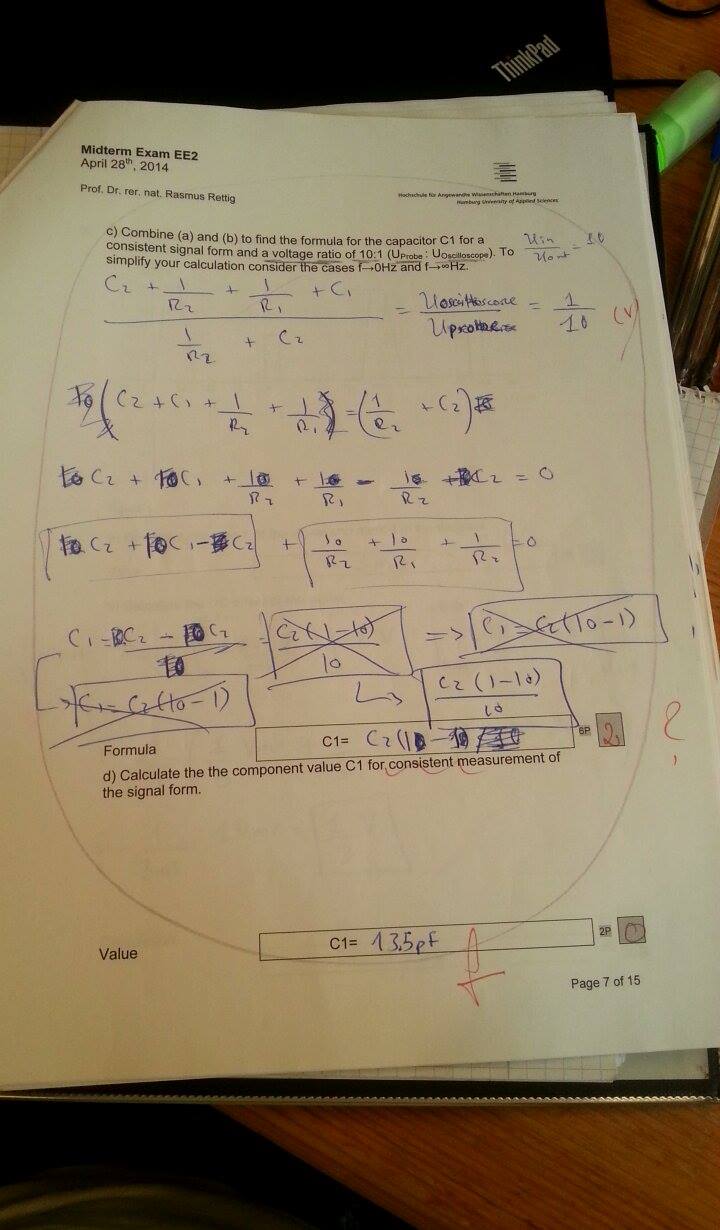 ThinkPad
Midterm Exam EE2
April 28th, 2014
Prof. Dr. rer. nat. Rasmus Rettig
Hochschule für Angewandte Wissenschaften Hamburg
Hamburg University of Applied Sciences
c) Combine (a) and (b) to find the formula for the capacitor C1 for a
consistent signal form and a voltage ratio of 10:1 (UProbe : UOscilloscope). To
simplify your calculation consider the cases f→0Hz and f→∞Hz.
Uin / Uout = 10
C2 + 1/R2 + 1/R1 + C1 / 1/R2 + C2 = Uoscilloscope / Uprobe = 1/10 (V)
(C2 + C1 + 1/R2 + 1/R1) = (1/R2 + C2)
C2 + C1 + 10/R2 + 10/R1 - /R2 C2 = 0
C2 + C1 - C2 + 10/R2 + 10/R1 + 1/R2 = 0
C1 = C2 - C2 / 10 = C2(1-10) / 10 => C1 = C2(10-1)
→ C1 = C2(10-1) ↳ C2 (1-10) / 10
Formula C1= C2(1 6P 2 ?
d) Calculate the the component value C1 for consistent measurement of
the signal form.
Value C1= 13.5pF f 2P 0
Page 7 of 15